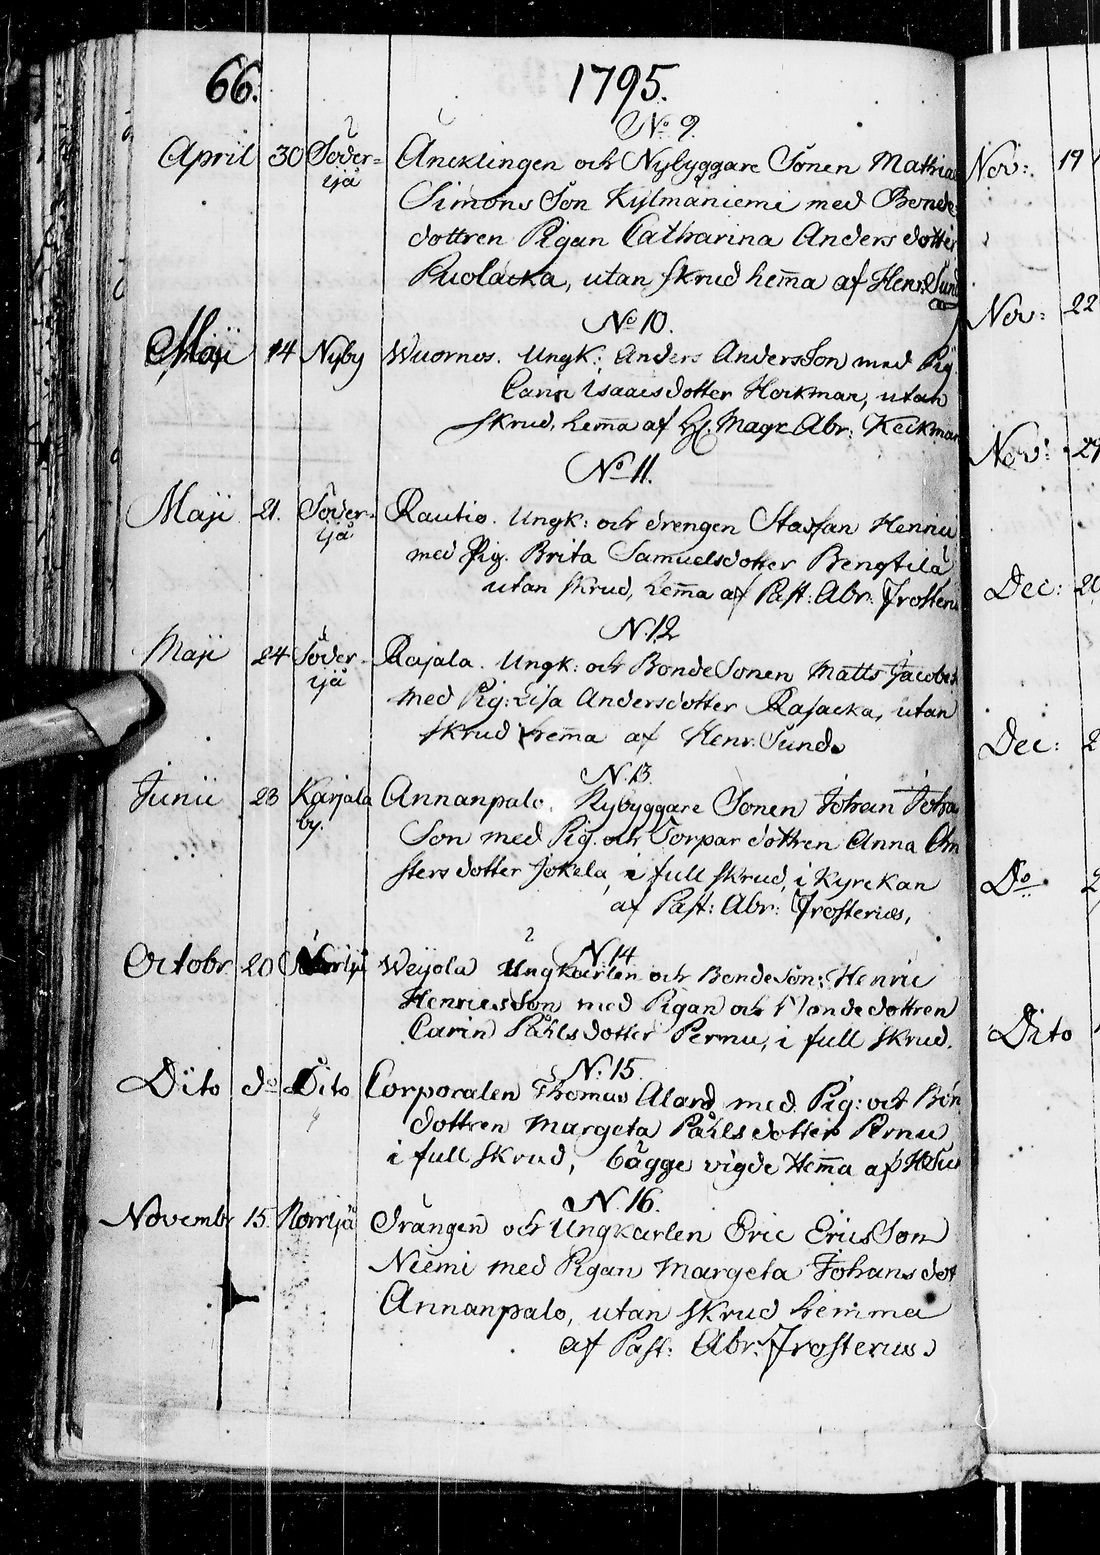 66. 1795.
No 9.
April 30 Söder= Äncklingen och Nybyggare Sonen Mathias
ijå Simons Son Kylmäniemi med Bonde
dottren Pigan Catharina Anders dotter
Puolacka, utan skrud hem̄a af Henr. Sund
No 10.
Maji 14 Nyby Wuornos. Ungk: Anders Andersson med Pig.
Carin Isaacsdotter Heikman, utan
skrud, hem̄a af H. Mag. Abr: Keckman
No 11.
Maji 21. Söder- Rautio. Ungk: och drengen Staffan Henric
ijå med Pig. Brita Samuelsdotter Bengtilä
utan skrud, hem̄a af Past: Abr: Frosterus
N. 12
Maji 24 Söder- Rajala. Ungk: och Bonde Sonen Matts Jacobs
ijå med Pig: Lisa Andersdotter Rajacka, utan
skrud hem̄a af Henr. Sund.
N. 13.
Junii 23 Karjala Annanpalo. Nybyggare Sonen Johan Joha
by. Son med Pig. och Torpar dottren Anna
sters dotter Jokela, i full skrud, i Kyrckan
af Past: Abr: Frosterus,
N. 14
Octobr 20 Norrijå Weijola Ungkarlen och Bondesön: Henric
Henricsson med Pigan och Bondedottren
Carin Påhlsdotter Pernu, i full skrud.
N. 15.
Dito do Dito Corporalen Thomas Aland med Pig: och Bon
dottren Margeta Påhls dotter Pernu
i full skrud, bägge vigde Hem̄a af
N. 16.
Novembr 15 Norrijå Drängen och Ungkarlen Eric Ericsson
Niemi med Pigan Margeta Johans dot
Annanpalo, utan skrud hemma
af Past: Abr: Frosterus.
Nov: 19
Nov: 22
Nov: 29
Dec:
Dec: 2
Do 2
Dito